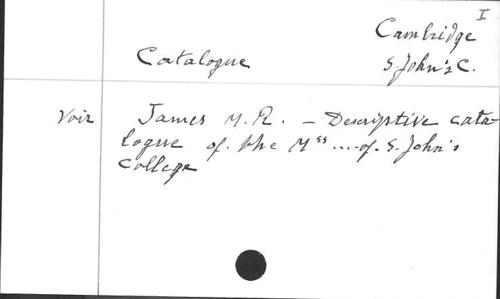 I
Cambridge
Catalogue S. John's C.
Voir James M. R. — Descriptive cata-
logue of the Mss .... of S. John's
College